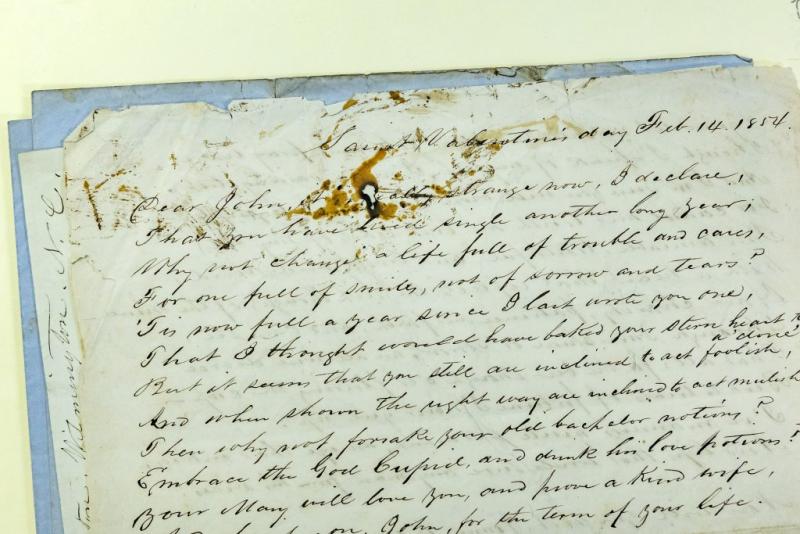 Saint Valentine's day Feb. 14. 1854.
Dear John, really strange now, I declare,
That you have lived single another long year;
Why not change a life full of trouble and cares,
For one full of smiles, not of sorrow and tears?
'Tis now full a year since I last wrote you one,
That I thought would have baked your stern heart
a 'done'
But it seems that you still are inclined to act foolish,
And when shown the right way are inclined to act mulish
Then why not forsake your old bachelor notions?
Embrace the God Cupid, and drink his love potions!
Your Mary will love you, and prove a kind wife,
on, John, for the term of your life.
Wilmington. N. C.